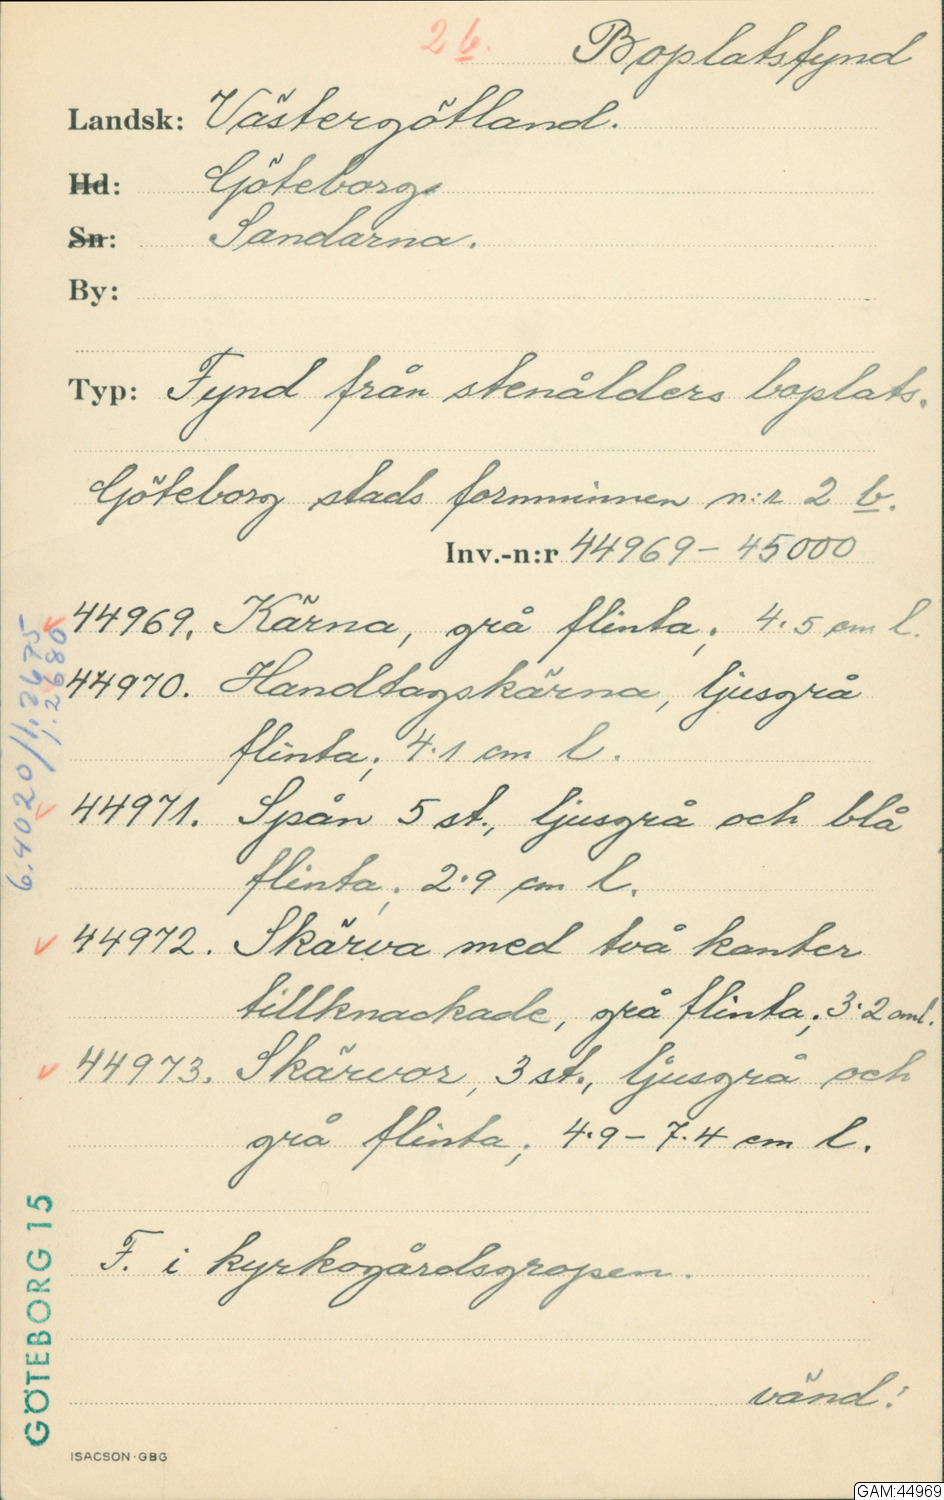 2 b.
Boplatsfynd
Landsk: Västergötland.
Hd: Göteborg
Sn: Sandarna.
By:
Typ: Fynd från stenålders boplats.
Göteborg stads fornminnen n:r 2 b.
Inv.-n:r 44969 - 45000
44969. Kärna, grå flinta; 4.5 cm l.
44970. Handtagskärna, ljusgrå
flinta; 4.1 cm l.
44971. Spån 5 st., ljusgrå och blå
flinta; 2.9 cm l.
v 44972. Skärva med två kanter
tillknackade, grå flinta; 3.2 cm l.
v 44973. Skärvor, 3 st., ljusgrå och
grå flinta; 4.9 - 7.4 cm l.
F. i kyrkogårdsgropen.
vänd!
6.4020/1.2675
1.2680
GÖTEBORG 15
ISACSON·GBG
GAM:44969